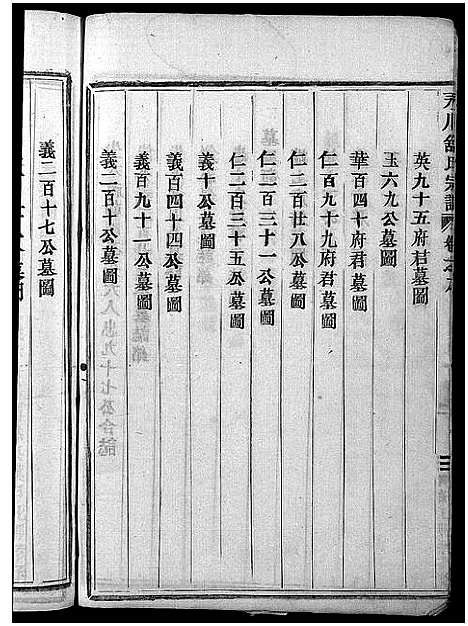 英九十五府君墓圖
玉六九公墓圖
華百六十府君墓圖
仁百九十九府君墓圖
仁二百廿八公墓圖
仁二百三十一公墓圖
仁二百三十五公墓圖
義十公墓圖
義百四十四公墓圖
義百九十一公墓圖
義二百十公墓圖
義二百十七公墓圖